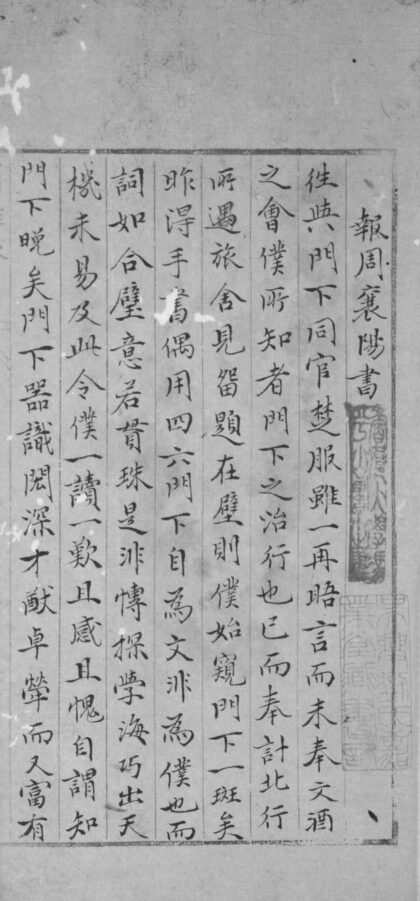 報周襄陽書
徃與門下同官楚服雖一再晤言而未奉文酒
之會僕所知者門下之治行也已而奉計北行
所遇旅舍見留題在壁則僕始窺門下一斑矣
昨得手書偶用四六門下自為文非為僕也而
詞如合璧意若貫珠是非慱探學海巧出天
機未易及此令僕一讀一歎且感且愧自謂知
門下晚矣門下器識閎深才猷卓犖而又富有